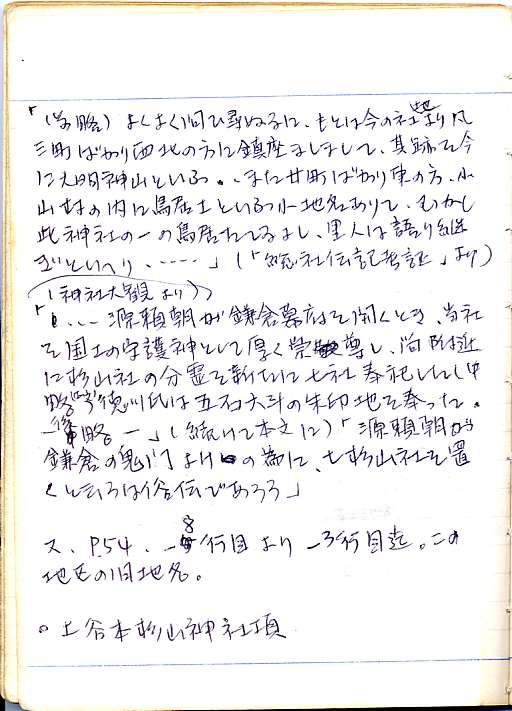 「(前略)よくよく問ひ尋ぬるに、もとは今の社地より凡
三町ばかり西北の方に鎮座ましまして、其跡を今
に大明神山といふ。、また廿町ばかり東の方、小
山村の内に鳥居土といふ小地名ありて、むかし
此神社の一の鳥居たてるよし、里人は語り継
ぎといへり、‥‥」(「総社伝記考証」より)
(神社大観より)
「‥‥源頼朝が鎌倉幕府を開くとき、当社
を国土の守護神として厚く崇尊し、尚附近
に杉山社の分霊を新たに七社奉祀した(中
略)徳川氏は五石六斗の朱印地を奉った。
―後略―」(続いて本文に)「源頼朝が
鎌倉の鬼門よけの為に、七杉山社を置
くと云ふは俗伝であろう」
又、P.54、―8行目より―3行目迄。この
地区の旧地名。
○ 上谷本杉山神社項